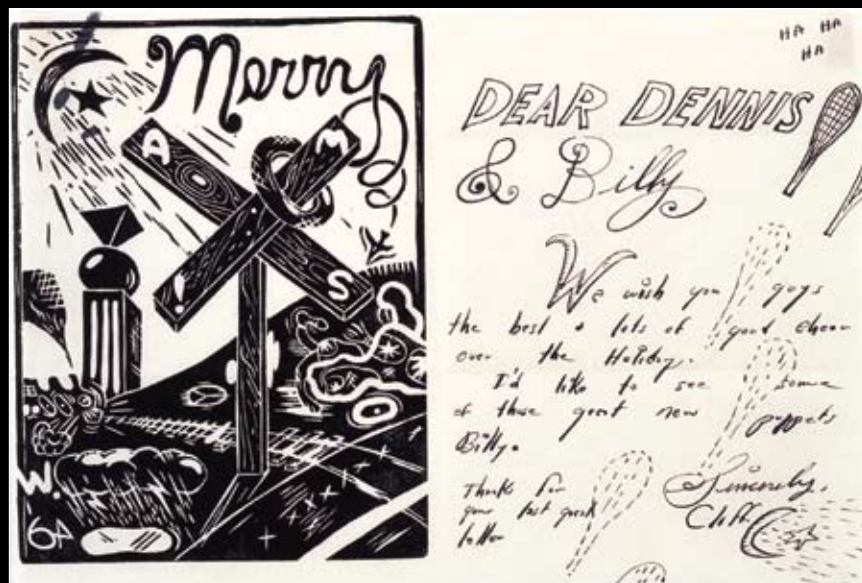 Merry
A M
! S
W.
64
HA HA
HA
DEAR DENNIS
& Billy
We wish you guys
the best & lots of good cheer
over the Holiday.
I'd like to see some
of those great new puppets
Billy.
Thanks for
your last great
letter
Sincerely,
Cliff.